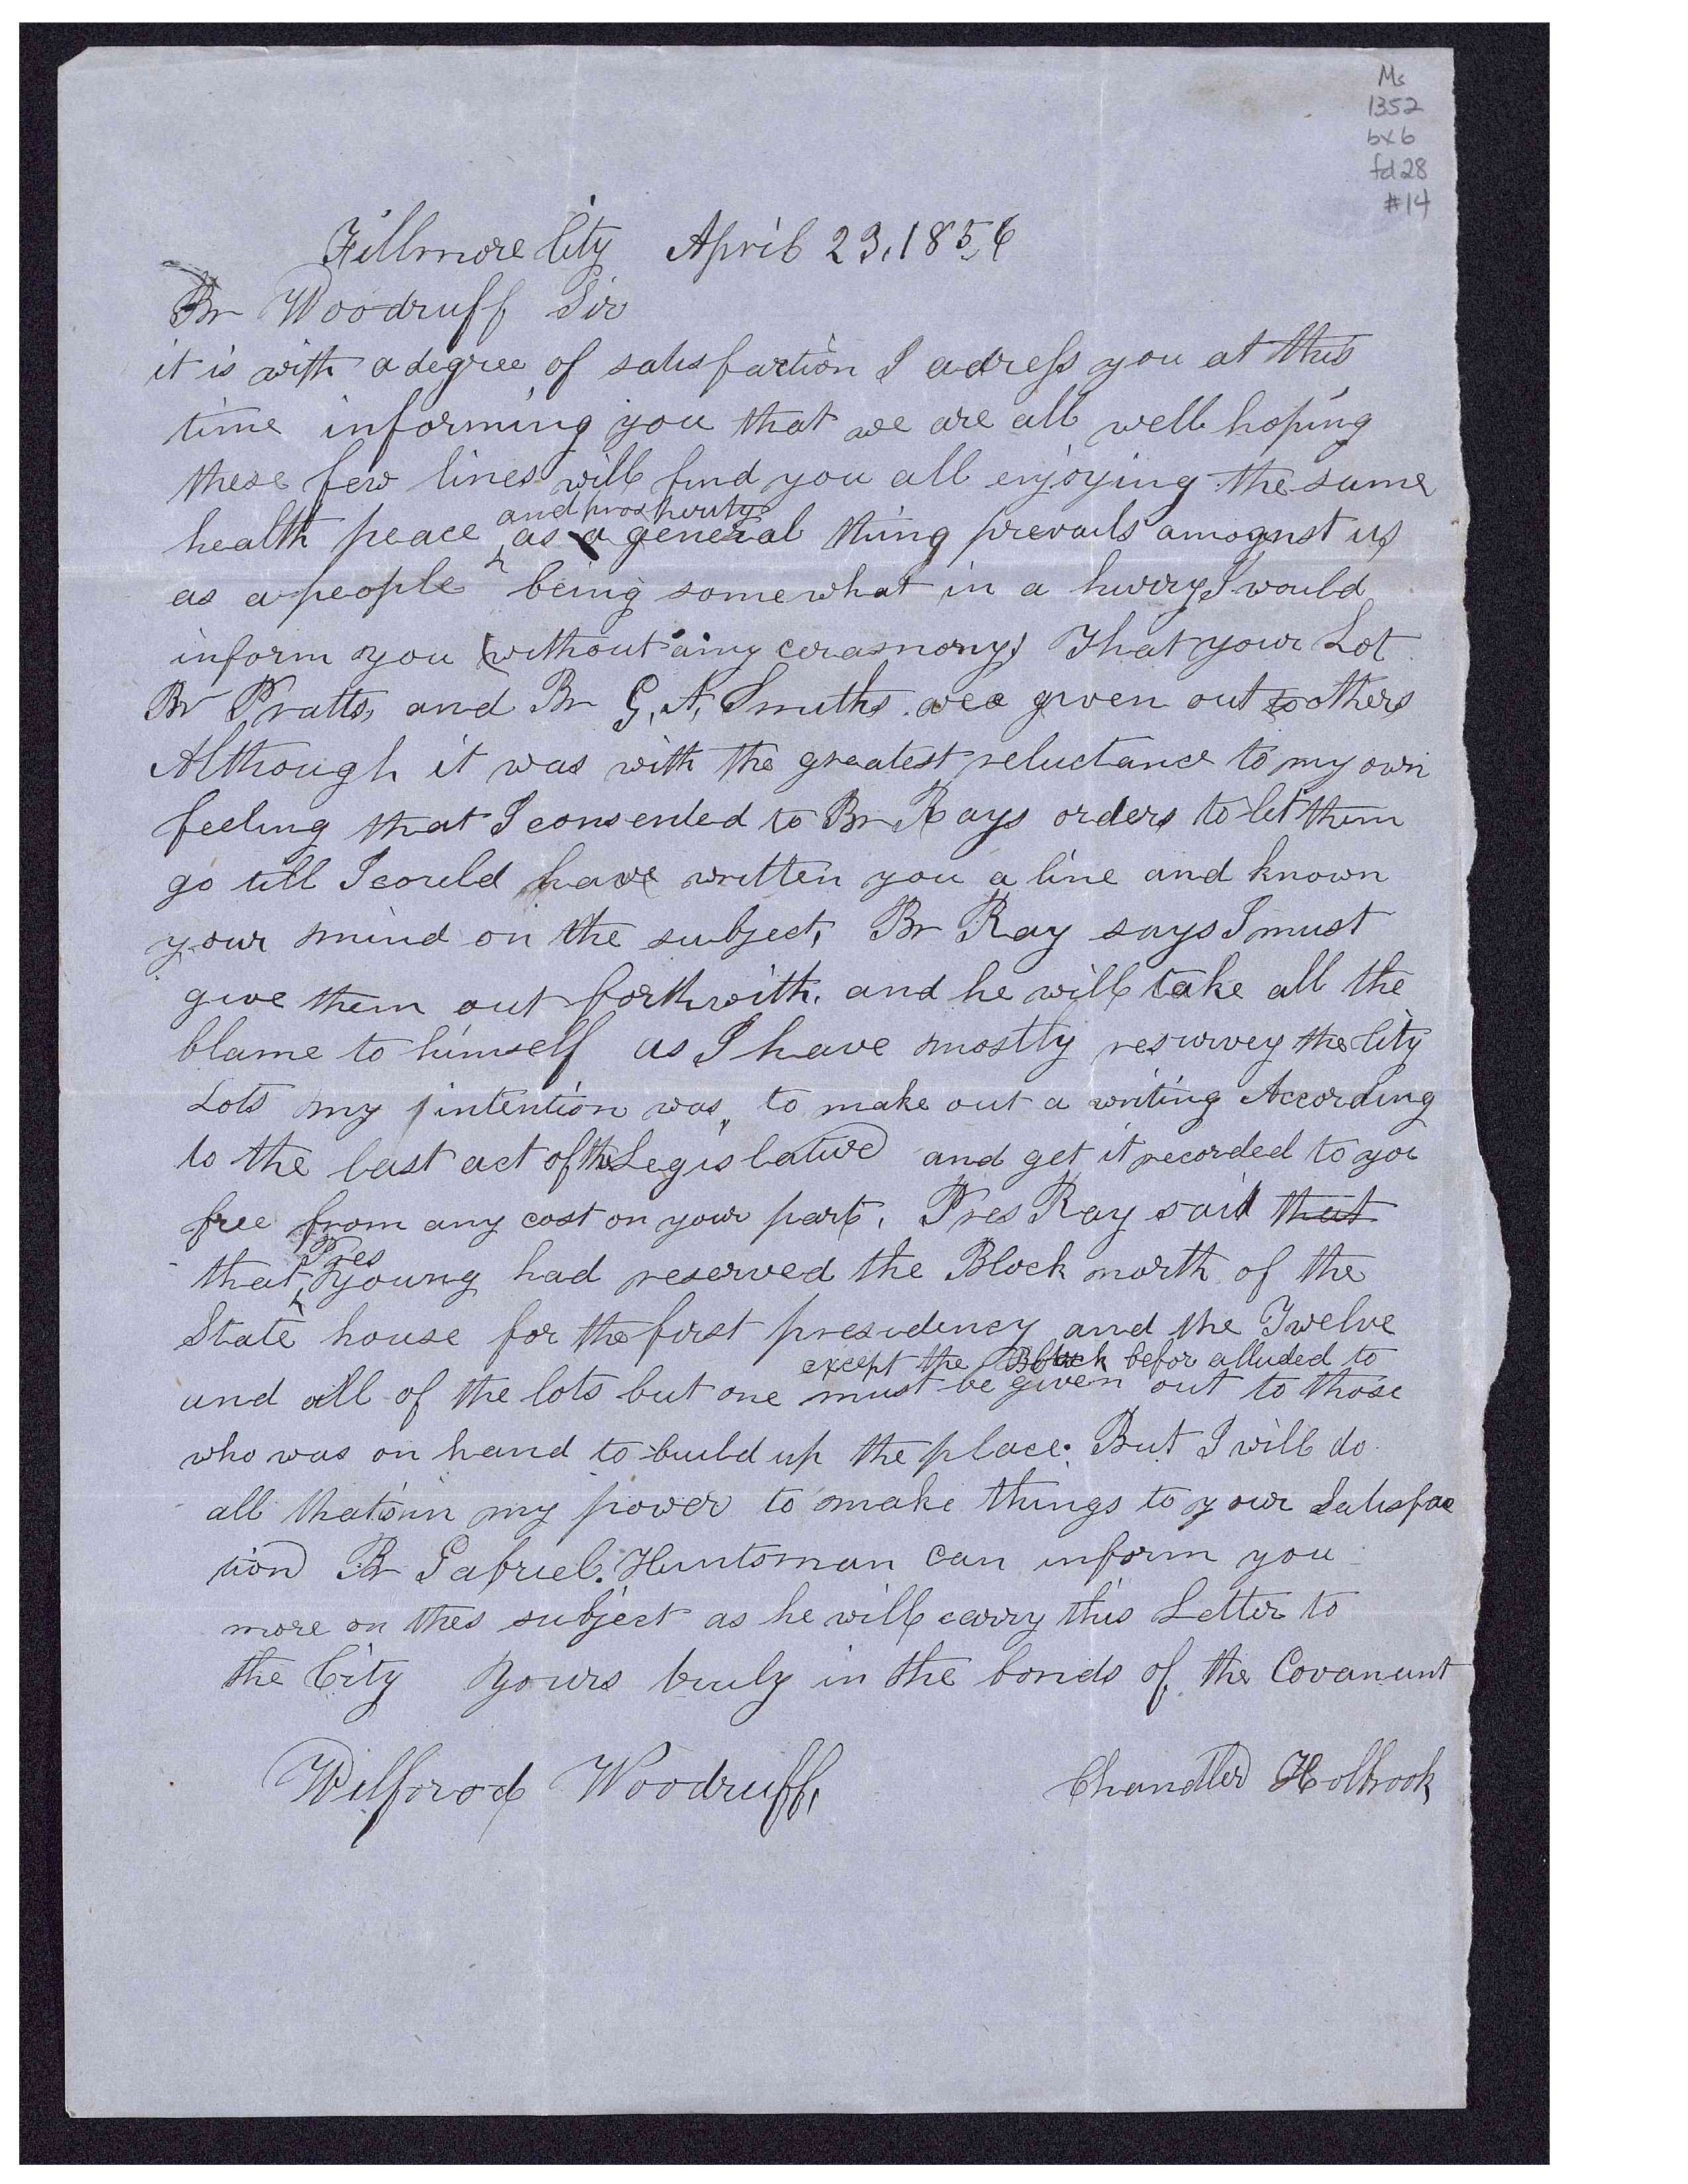 Ms
1352
bx 6
fd 28
#14
Fillmore City April 23, 1856
Br Woodruff Sir
it is with a degree of satisfaction I adress you at this
time informing you that we are all well hoping
these few lines will find you all enjoying the same
and prosperity
health peace as a general thing prevails amognst us
as a people being somewhat in a hurry I would
inform you (without any cerasmony) That your Lot
Br Pratts, and Br G, A, Smiths. are given out to others
Although it was with the greatest reluctance to my own
feeling that I consented to Br Rays orders to let them
go till I could have written you a line and known
your mind on the subject, Br Ray says I must
give them out forthwith. and he will take all the
blame to himself as I have mostly resurvey the City
Lots my intention was, to make out a writing According
to the last act of the Legislative and get it recorded to you
free from any cost on your part, Pres Ray said that
Pres
that Young had reserved the Block north of the
State house for the first presidency and the Twelve
except the Block befor alluded to
and all of the lots but one must be given out to those
who was on hand to build up the place. But I will do
all thats in my power to make things to your Satisfac
tion Br Gabriel. Huntsman can inform you
more on thes subject as he will carry this Letter to
the City Yours truly in the bonds of the Covanant
Wilford Woodruff, Chandler Holbrook